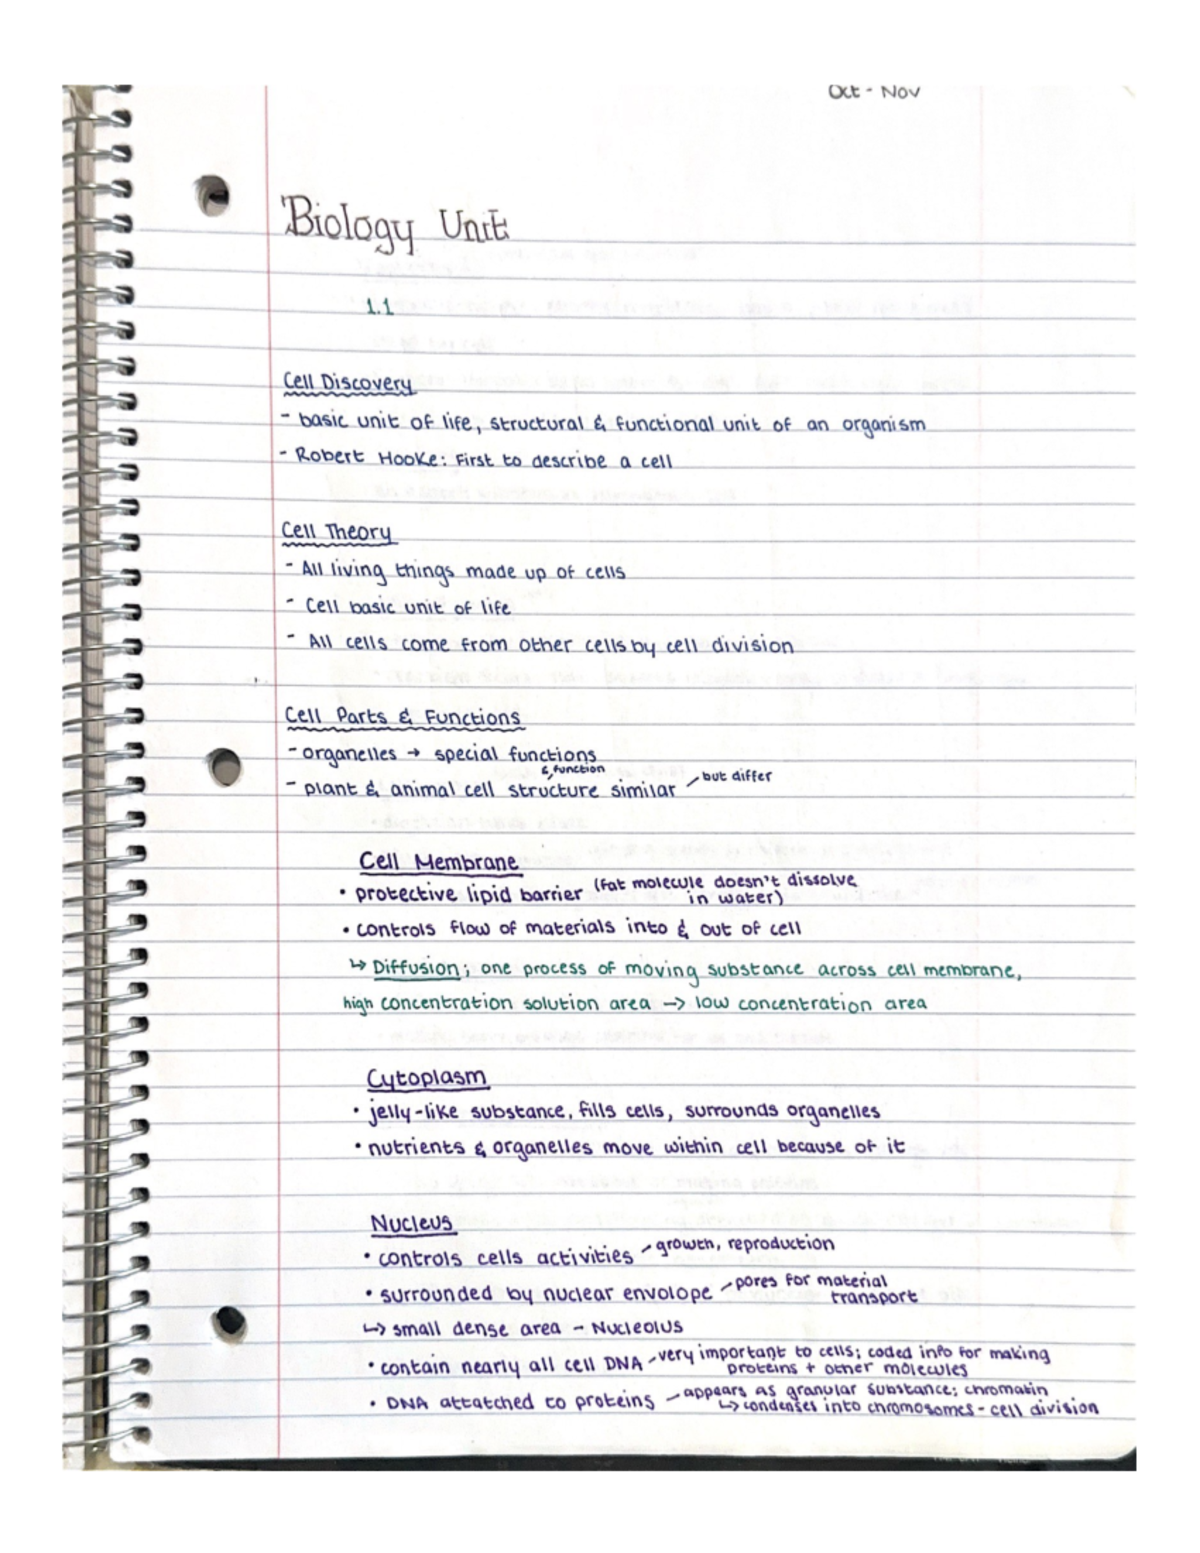 Oct - Nov
Biology Unit
1.1
Cell Discovery
- basic unit of life, structural & functional unit of an organism
- Robert Hooke: First to describe a cell
Cell Theory
- All living things made up of cells
- Cell basic unit of life
- All cells come from other cells by cell division
Cell Parts & Functions
- organelles → special functions
& function
- plant & animal cell structure similar - but differ
Cell Membrane
• protective lipid barrier (fat molecule doesn't dissolve
in water)
• controls flow of materials into & out of cell
↳ Diffusion; one process of moving substance across cell membrane,
high concentration solution area → low concentration area
Cytoplasm
• jelly-like substance, fills cells, surrounds organelles
• nutrients & organelles move within cell because of it
Nucleus
• controls cells activities - growth, reproduction
• surrounded by nuclear envolope - pores for material
transport
↳ small dense area - Nucleolus
• contain nearly all cell DNA - very important to cells; coded info for making
proteins + other molecules
• DNA attatched to proteins - appears as granular substance; chromatin
↳ condenses into chromosomes - cell division